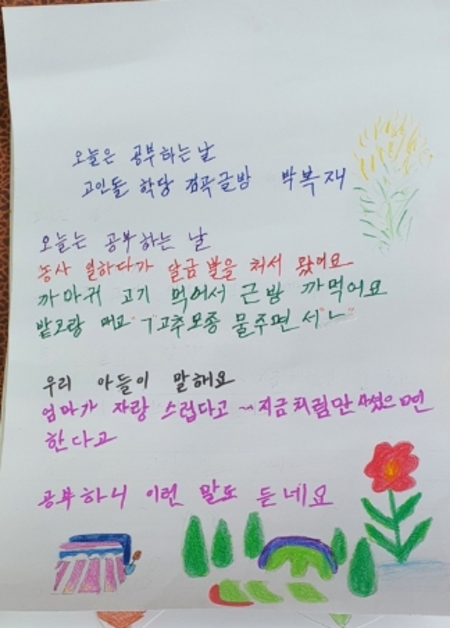 오늘은 공부하는 날
고인돌 학당 검곡글방 박복재
오늘는 공부하는 날
농사 일하다가 달음 뿔을 쳐서 왔어요
까마귀 고기 먹어서 근방 까먹어요
밭고랑 매고 "ㄱ고추모종 물주면서ㄴ"
우리 아들이 말해요
엄마가 자랑 스럽다고 ~지금처럼만 썼으면
한다고
공부하니 이런 말도 듣네요